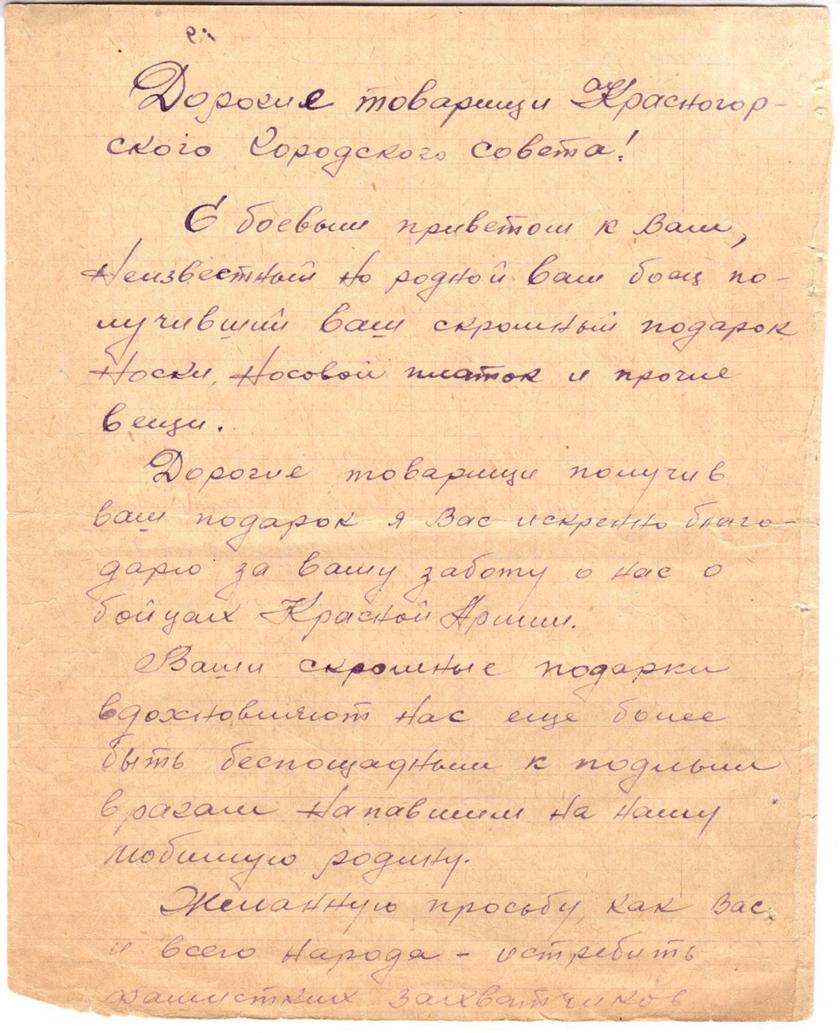 Дорогие товарищи Красногор-
ского Городского совета!
С боевым приветом к Вам,
Неизвестный но родной вам боец по-
лучивший ваш скромный подарок
Носки, Носовой платок и прочие
вещи.
Дорогие товарищи получив
ваш подарок я Вас искренно благо-
дарю за вашу заботу о нас о
бойцах Красной Армии.
Ваши скромные подарки
вдохновляют нас еще более
быть беспощадным к подлым
врагам Напавшим на нашу
любимую родину.
Желанную просьбу как Вас
и всего Народа - истребить
фашистких захватчиков